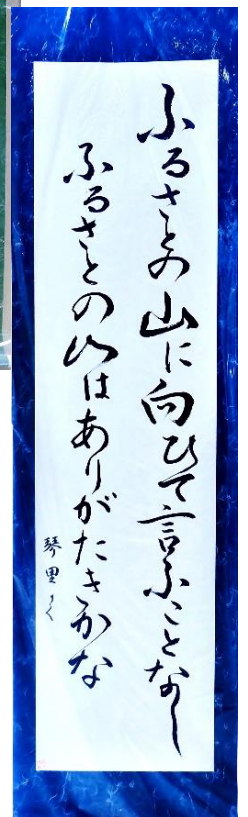 ふるさとの山に向ひて言ふことなし
ふるさとの山はありがたきかな
琴里かく